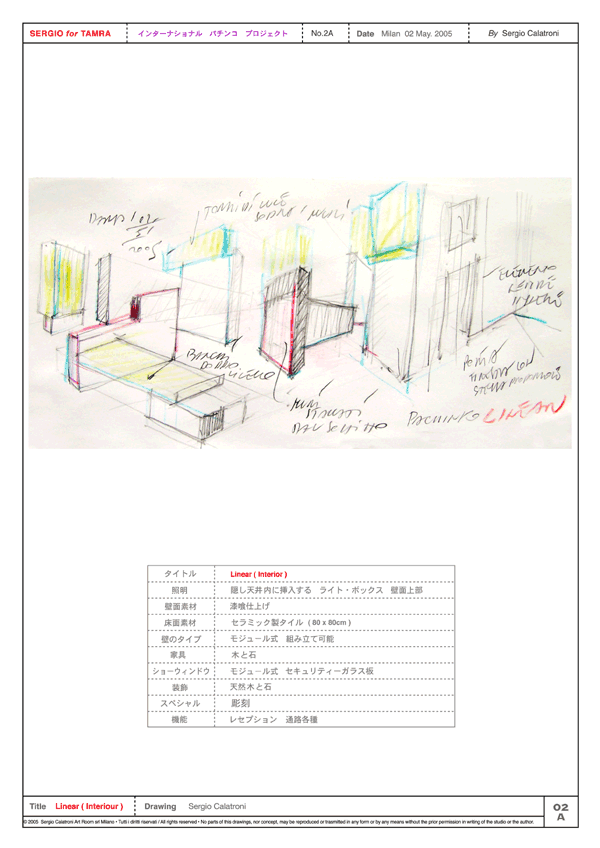 SERGIO for TAMRA インターナショナル パチンコ プロジェクト No.2A Date Milan 02 May. 2005 By Sergio Calatroni
2005
PACHINKO LINEAR
タイトル Linear ( Interior )
照明 隠し天井内に挿入する ライト・ボックス 壁面上部
壁面素材 漆喰仕上げ
床面素材 セラミック製タイル ( 80 x 80cm )
壁のタイプ モジュール式 組み立て可能
家具 木と石
ショーウィンドウ モジュール式 セキュリティーガラス板
装飾 天然木と石
スペシャル 彫刻
機能 レセプション 通路各種
Title Linear ( Interiour ) Drawing Sergio Calatroni 02
A
© 2005 Sergio Calatroni Art Room srl Milano • Tutti i diritti riservati / All rights reserved • No parts of this drawings, nor concept, may be reproduced or trasmitted in any form or by any means without the prior permission in writing of the studio or the author.